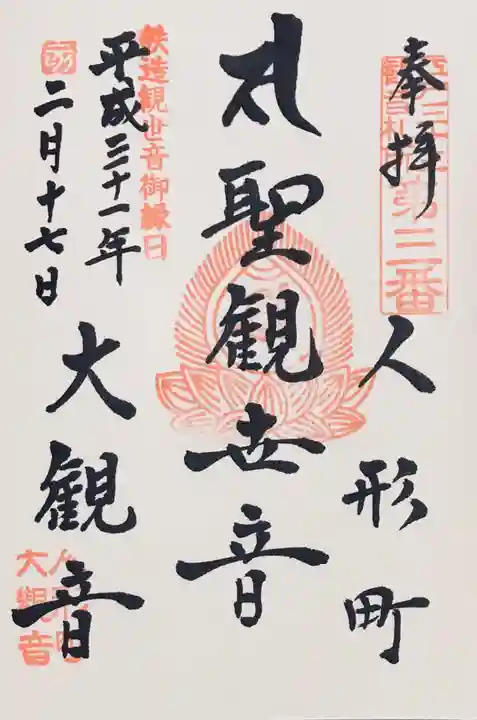 奉拝
江戸三十三
観音札所
第三番
人形町
聖観世音
鉄造観世音御縁日
平成三十一年
二月十七日
大観音
人形町
大観音